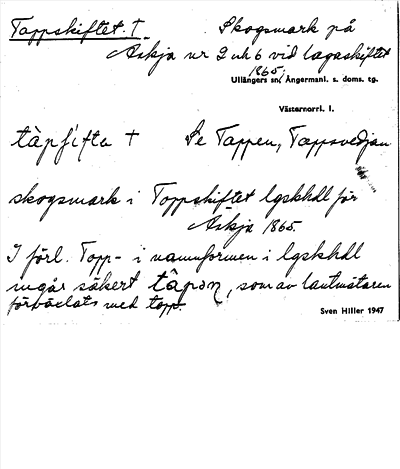 Tappskiftet. † Skogsmark på
Askja nr 2 och 6 vid lagaskiftet
1865.
Ullångers sn, Ångermanl. s. doms. tg.
Västernorrl. l.
tàpfifta † Se Tappen, Tappsvedjan
skogsmark i Toppskiftet lgskhdl för
Askja 1865.
I förl. Topp- i namnformen i lgskhdl
ingår säkert tâpən, som av lantmätaren
förväxlats med topp.
Sven Hiller 1947